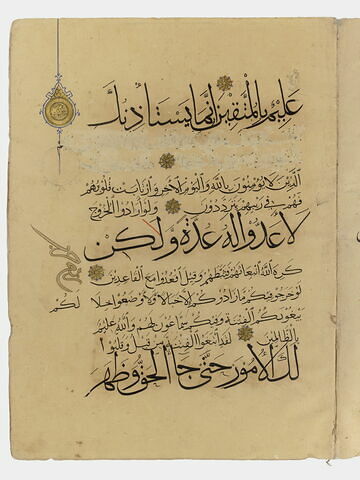 عليم بالمتقين إنما يستأذنك
الذين لا يؤمنون بالله واليوم الآخر وارتابت قلوبهم
فهم في ريبهم يترددون ولو أرادوا الخروج
لأعدوا له عدة ولكن
كره الله انبعاثهم فثبطهم وقيل اقعدوا مع القاعدين
لو خرجوا فيكم ما زادوكم إلا خبالا ولأوضعوا خلالكم
يبغونكم الفتنة وفيكم سماعون لهم والله عليم
بالظالمين لقد ابتغوا الفتنة من قبل وقلبوا
لك الأمور حتى جاء الحق وظهر